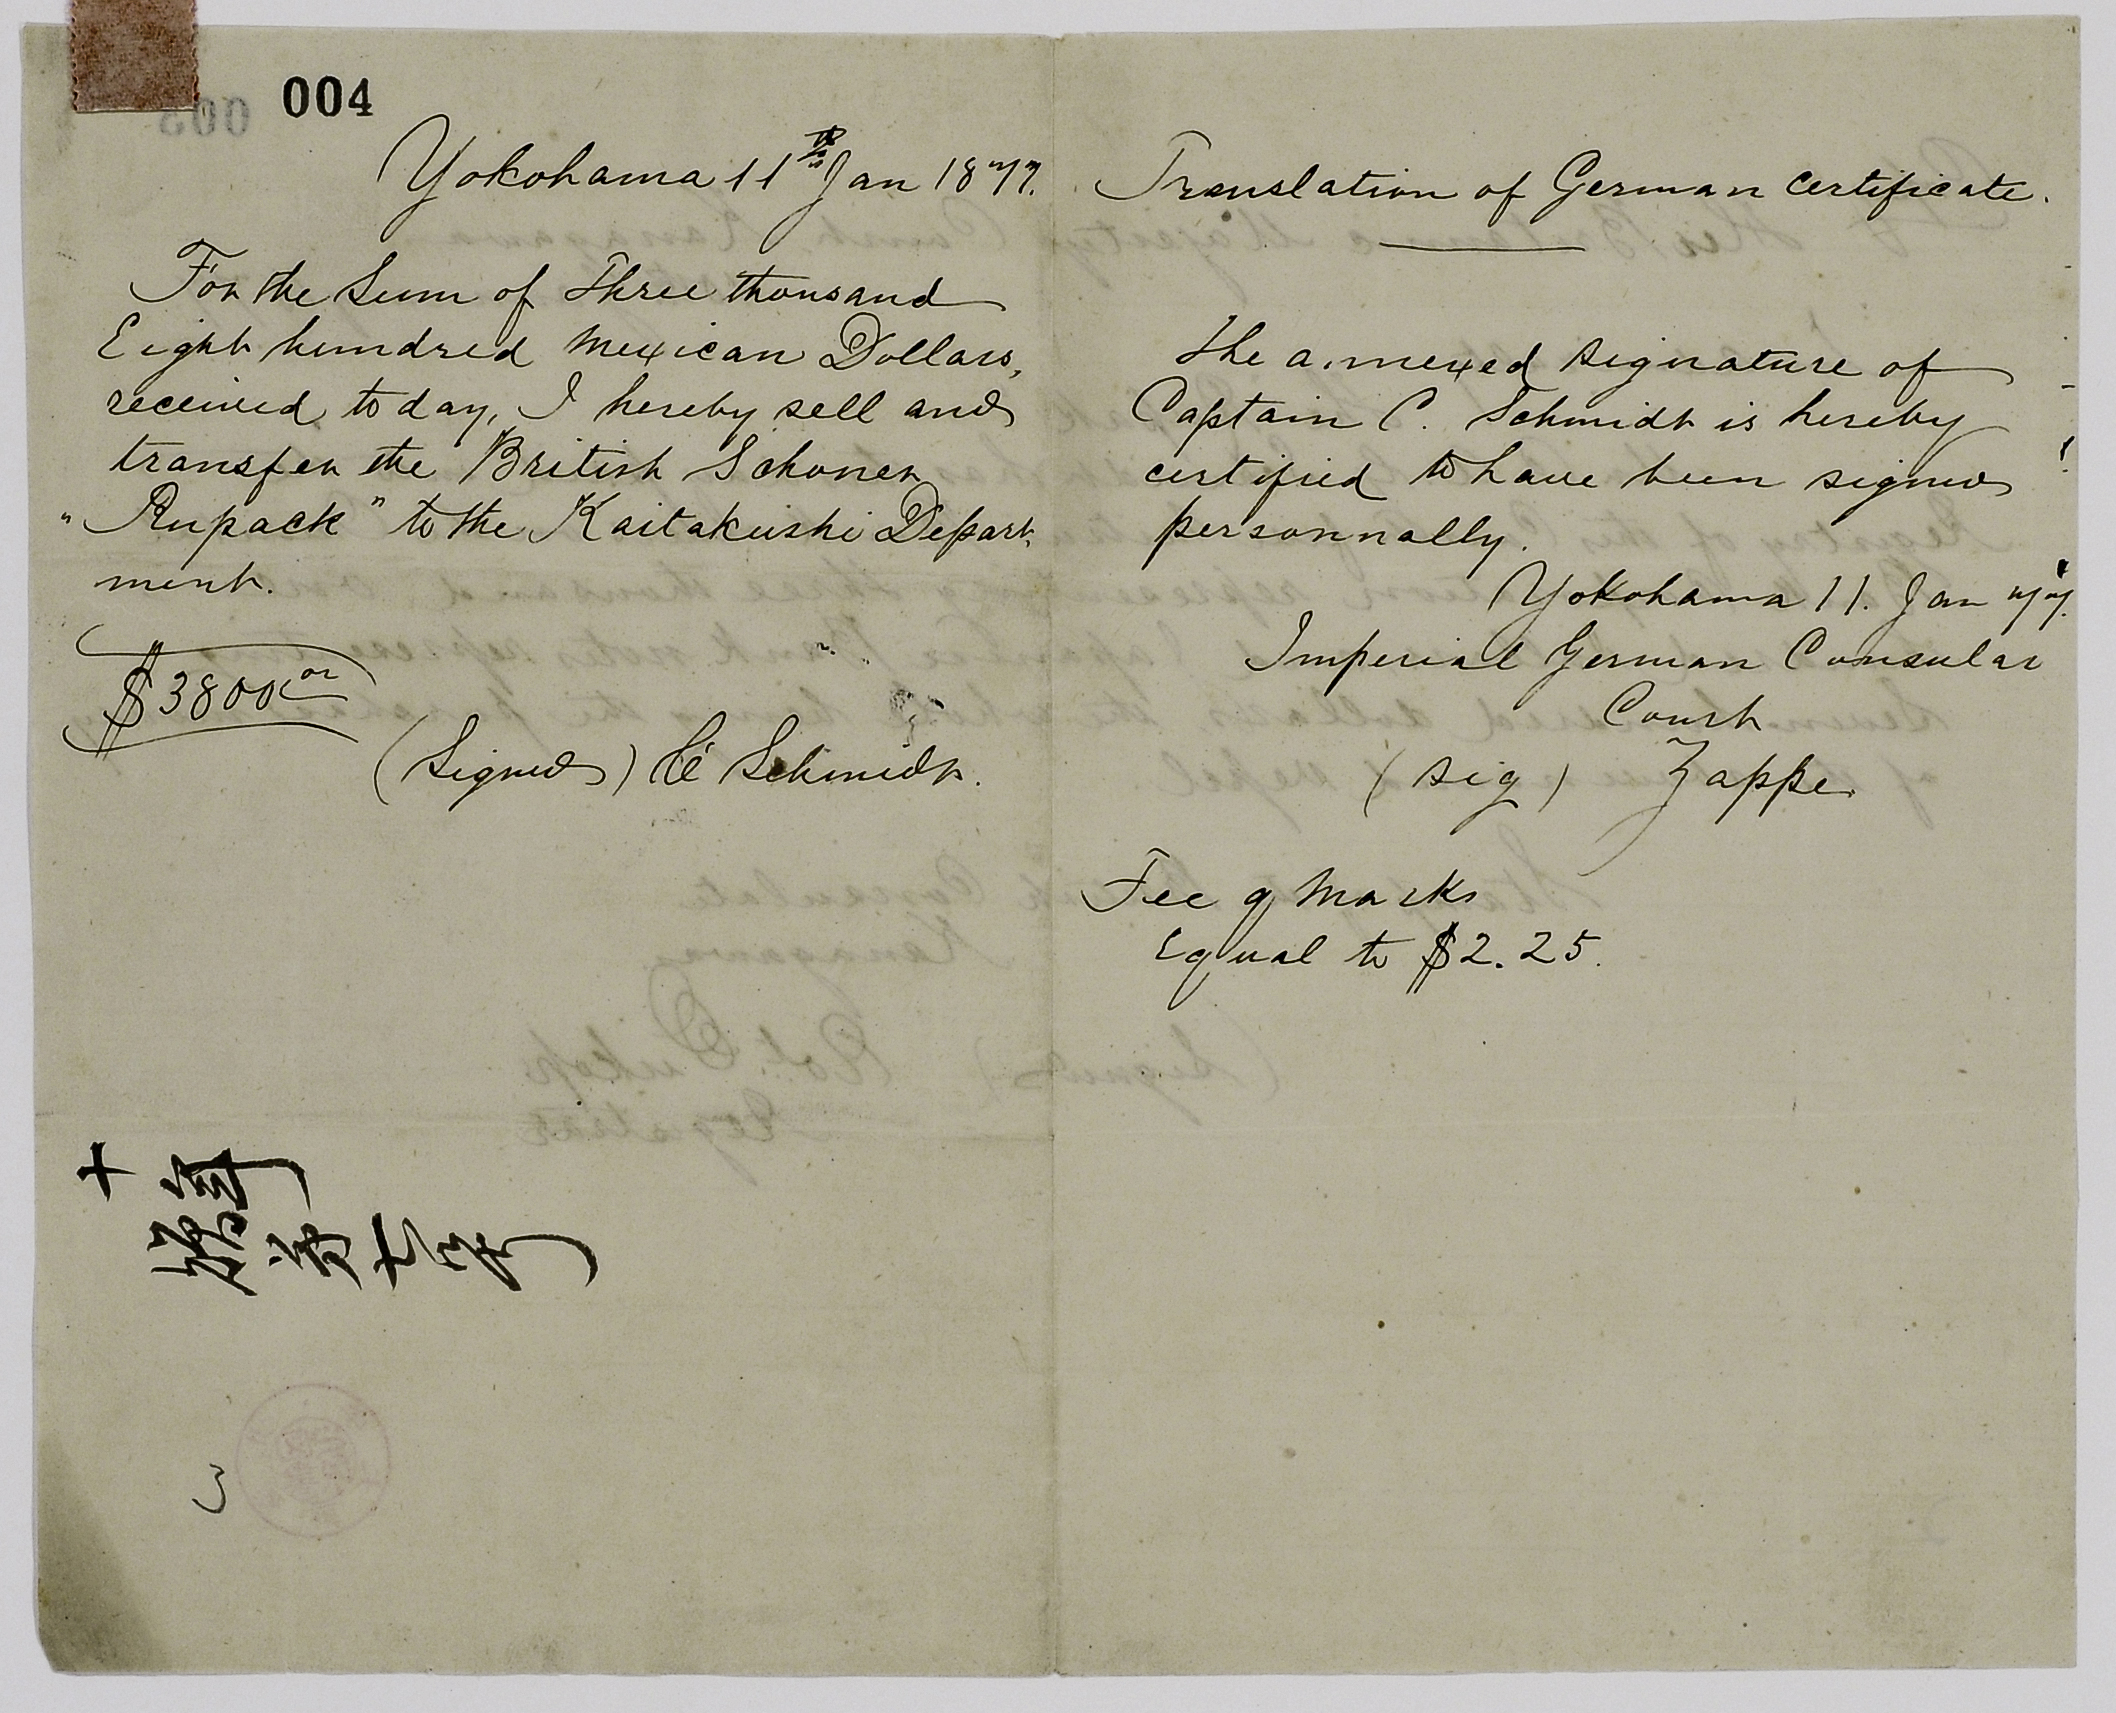 004
Yokohama 11th Jan 1877.
For the Sum of Three thousand
Eight hundred Mexican Dollars,
received to day, I hereby sell and
transfer the British Schoner
"Rupack" to the Kaitakushi Depart-
ment.
$3800.00
(Signed) C Schmidt.
Translation of German certificate.
The annexed signature of
Captain C. Schmidt is hereby
certified to have been signed
personnally.
Yokohama 11. Jan 77.
Imperial German Consular
Court
(sig) Zappe
Fee 9 Marks
Equal to $2.25.
3